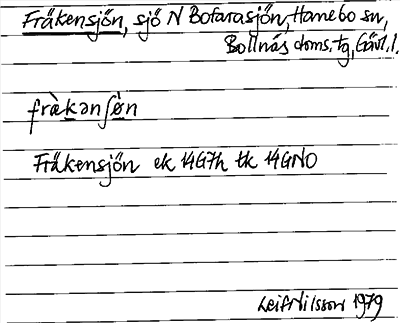 Fräkensjön, sjö N Bofarasjön, Hanebo sn,
Bollnäs doms.tg, Gävl.l.
frὰkənʃø̀n
Fräkensjön ek 14G7h tk 14GNO
Leif Nilsson 1979